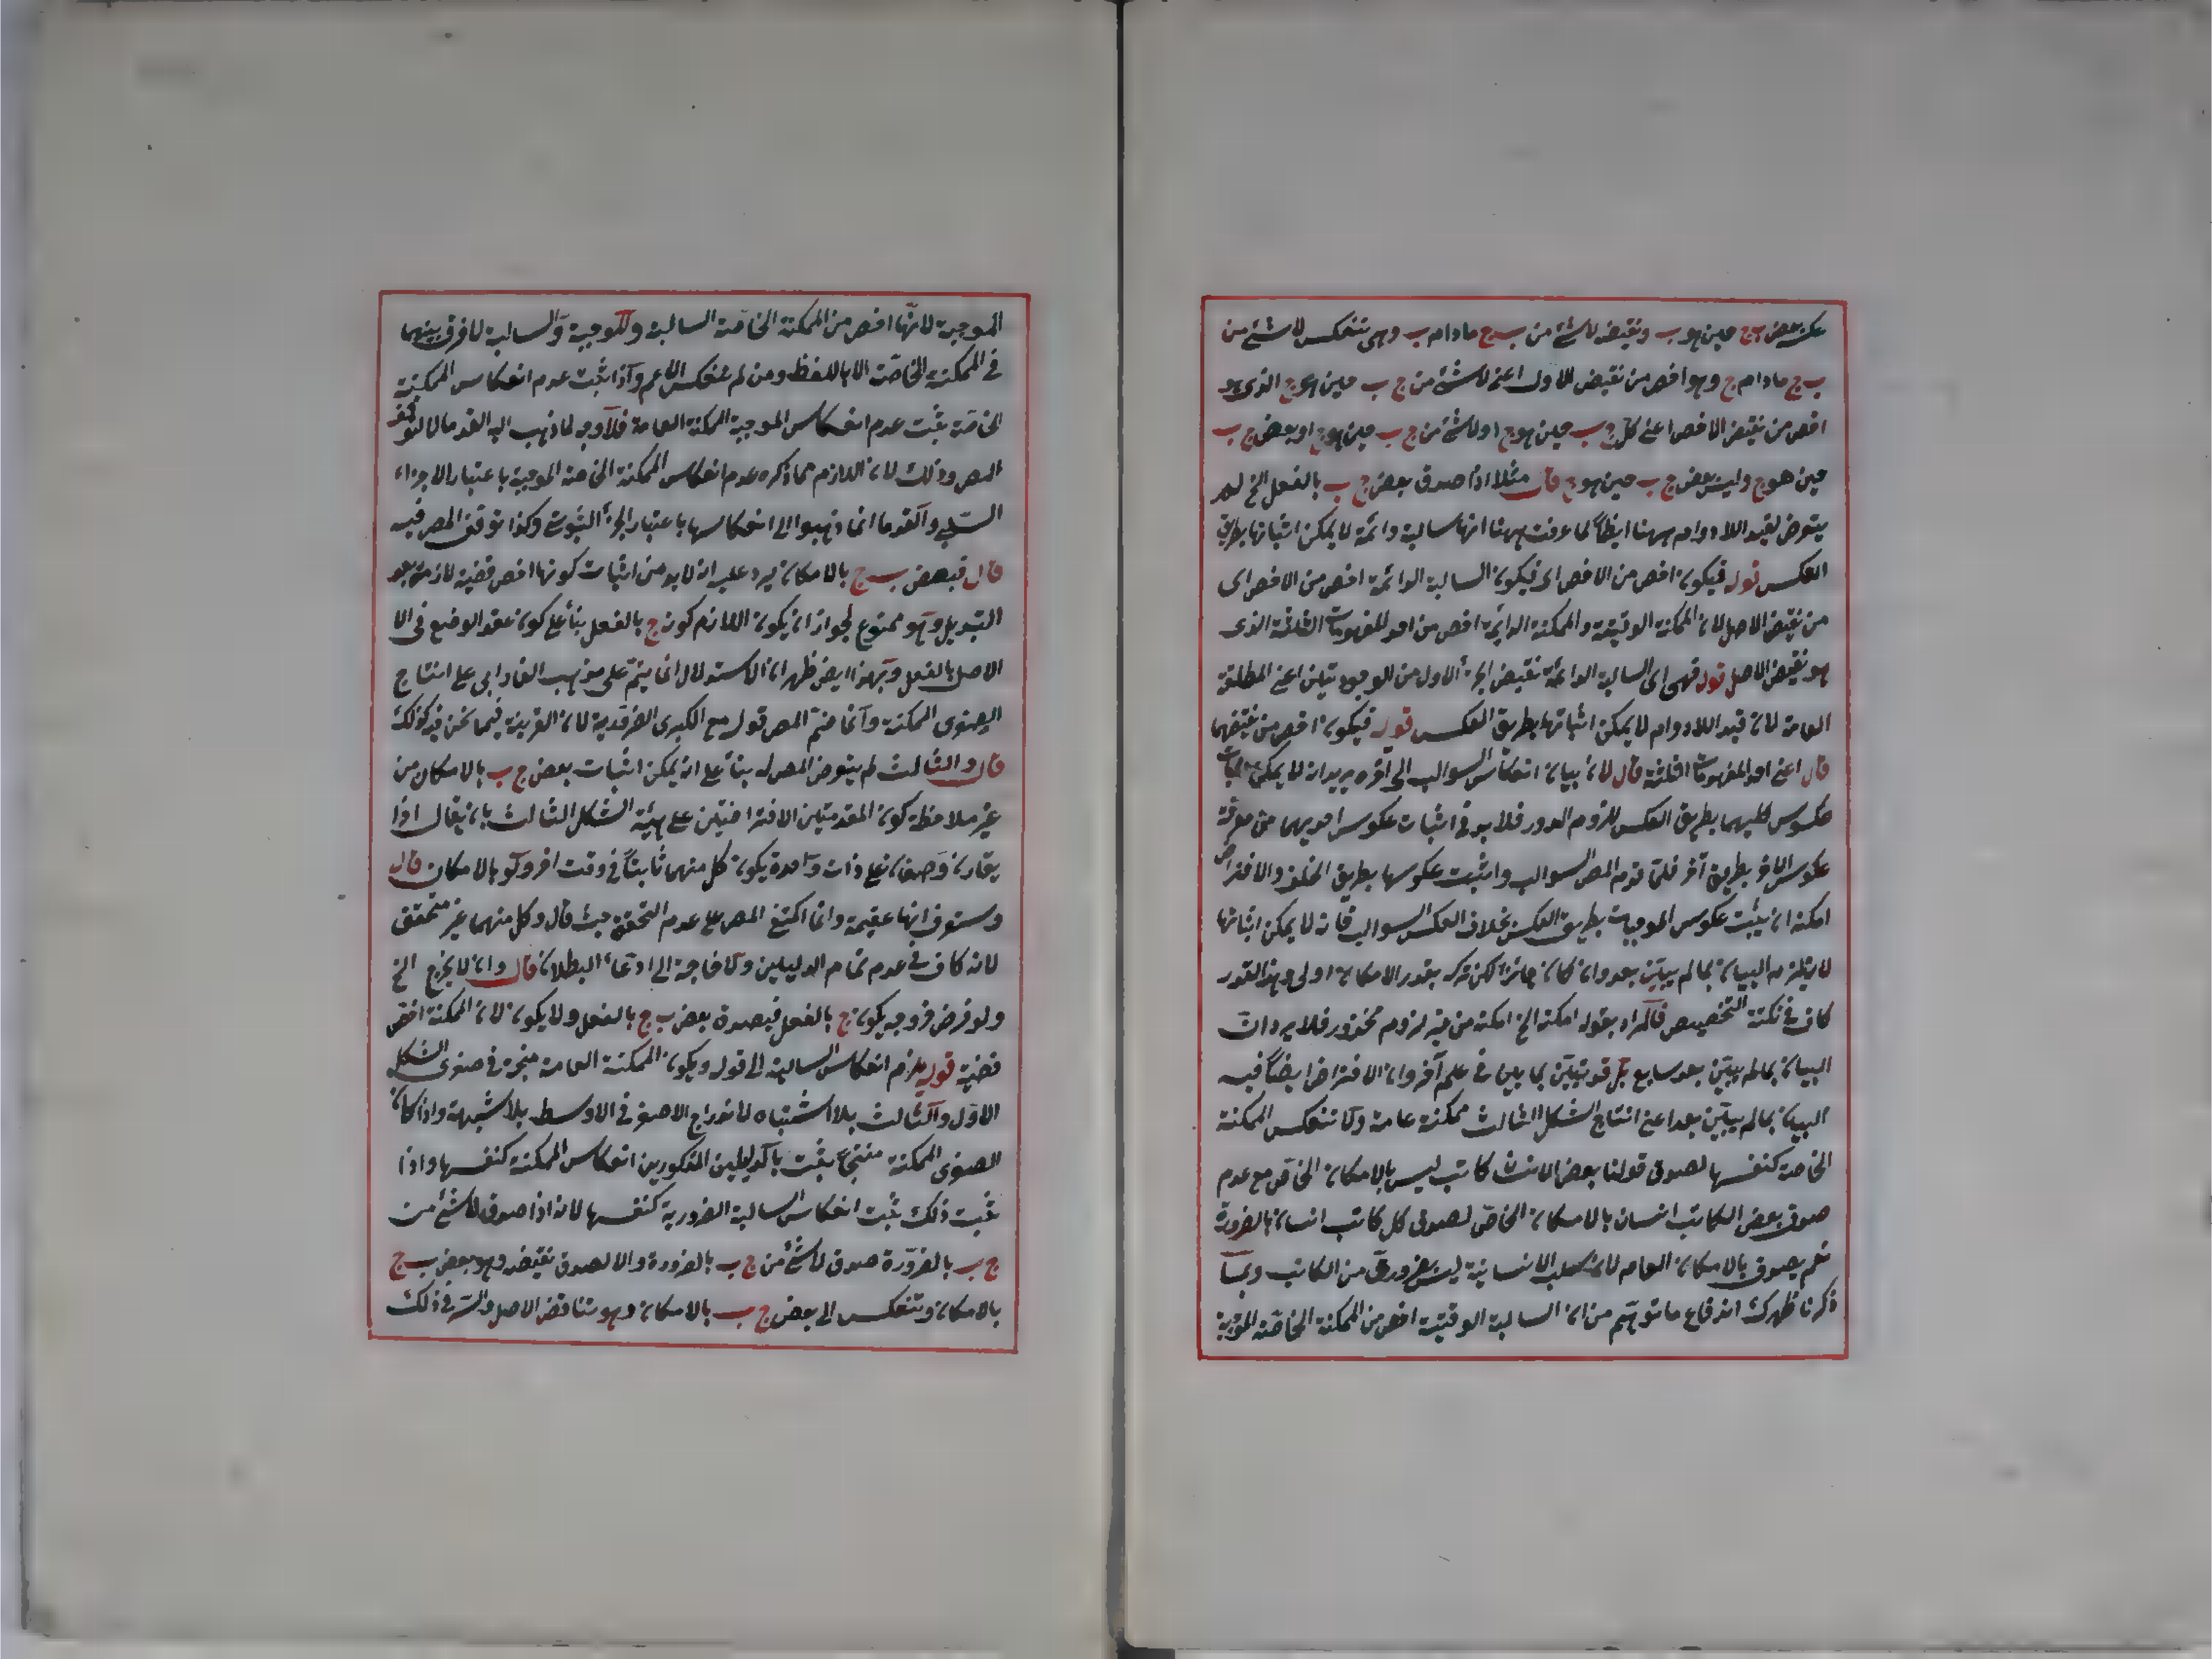 عكسه بعض ب ج حين هو ب ونقيضه لا شئ من ب ج مادام ب وهى تنعكس لا شئ من
ب ج مادام ج وهو اخص من نقيض الاول اعنى لا شئ من ج ب حين هو ج الذى هو
اخص من نقيض الاخص اعنى كل ج ب حين هو ج او لا شئ من ج ب حين هو ج او بعض ج ب
حين هو ج وليس بعض ج ب حين هو ج قال مثلا اذا صدق بعض ج ب بالفعل الخ لم
يتعرض لقيد اللادوام ههنا ايضاً لما عرفت ههنا انها سالبة دائمة لا يمكن اثباتها بطريق
العكس قوله فيكون اخص من الاخص اى فيكون السالبة الدائمة اخص من الاخص اى
من نقيض الاصل لان الممكنة الوقتية والممكنة الدائمة اخص من احد المفهومات الثلثة الذى
هو نقيض الاصل قوله فهى اى السالبة الدائمة نقيض الجزء الاول من الوجوديتين اعنى المطلقة
العامة لان قيد اللادوام لا يمكن اثباتها بطريق العكس قوله فيكون اخص من نقيضهما
قال اعنى احد المفهومات الثلثة قال لان بيان انعكاس السوالب الى آخره يريد انه لا يمكن اثبات
عكوس كليهما بطريق العكس للزوم الدور فلابد فى اثبات عكوس احديهما من معرفة
عكوس الاخر بطريق آخر فلما قدم المص السوالب واثبت عكوسها بطريق الخلف والافتراض
امكنه ان يثبت عكوس الموجبات بطريق العكس بخلاف العكس السوالب فانه لا يمكن اثباتها
لا يلزم البيان بما لم يبيّن بعد وان كان جائزا لكن تركه بقدر الامكان اولى وهذا القدر
كاف فى نكتة التخصيص فالمراد بقوله امكنه الخ امكنه من غير لزوم محذور فلا يرد ان
البيان بما لم يبيّن بعد سايع بل قد يتبيّن بما يبين فى علم آخر وان الافتراض ايضاً فيه
البيان بما لم يبيّن بعد اعنى انتاج الشكل الثالث ممكنة عامة ولا تنعكس الممكنة
الخاصة كنفسها لصدق قولنا بعض الانسان كاتب ليس بالامكان الخاص مع عدم
صدق بعض الكاتب انسان بالامكان الخاص لصدق كل كاتب انسان بالضرورة
نعم يصدق بالامكان العام لان سلب الانسانية ليس بضرورى من الكاتب وبما
ذكرنا ظهرك اندفاع ما توهم من ان السالبة الوقتية اخص من الممكنة الخاصة الموجبة
الموجبة لانها اخص من الممكنة الخاصة السالبة والموجبة والسالبة لا فرق بينهما
فى الممكنة الخاصة الا باللفظ ومن لم ينعكس الاعم واذا ثبت عدم انعكاس الممكنة
الخاصة ثبت عدم انعكاس الموجبة الممكنة العامة فلا وجه لما ذهب اليه القدما لا لتوقف
المص وذلك لان اللازم مما ذكره عدم انعكاس الممكنة الخاصة الموجبة باعتبار الاجزاء
السلبى والقدما انما ذهبوا الى انعكاسها باعتبار الجزء الثبوتى وكذا توقف المص فيه
قال فبعض ب ج بالامكان يرد عليه انه لابد من اثبات كونها اخص قضية لازمة بعد
التبديل وهو ممنوع لجواز ان يكون اللازم كون ج بالفعل بناء على كون عقد الوضع فى الا
الاصل بالفعل وبهذا ايض ظهر ان الاستدلال انما يتم على مذهب الفارابى على انتاج
الصغرى الممكنة وانما ضم المص قوله مع الكبرى الضرورية لان القرينة فيما نحن فيه كذلك
قال والثالث لم يتعرض المص له بناء على انه يمكن اثبات بعض ج ب بالامكان من
غير ملاحظة كون المقدمتين الافتراضيتين على هيئة الشكل الثالث بان يقال اذا
يقارن وصفان على ذات واحدة يكون كل منهما ثابتاً فى وقت اخر ولو بالامكان قال
وستعرف انها عقيمة وانما اكتفى المص على عدم التحقق حيث قال وكل منهما غير متحقق
لانه كاف فى عدم تمام الدليلين ولا حاجة الى ادعاء البطلان قال وان لا يخرج الخ
ولو فرض خروجه يكون ج بالفعل فيصدق بعض ب ج بالفعل ولا يكون لان الممكنة اخص
قضية قوله يلزم انعكاس السالبة الى قوله ويكون الممكنة العامة منتجة فى صغرى الشكل
الاول والثالث بلا اشتباه لاندراج الاصغر فى الاوسط بلا شبهة واذا كان
الصغرى الممكنة منتجاً يثبت بالدليلين المذكورين انعكاس الممكنة كنفسها واذا
ثبت ذلك ثبت انعكاس السالبة الضرورية كنفسها لانه اذا صدق لا شئ من
ج ب بالضرورة صدق لا شئ من ج ب بالضرورة والا لصدق نقيضه وهو بعض ب ج
بالامكان وتنعكس الى بعض ج ب بالامكان وهو تناقض الاصل والسر فى ذلك